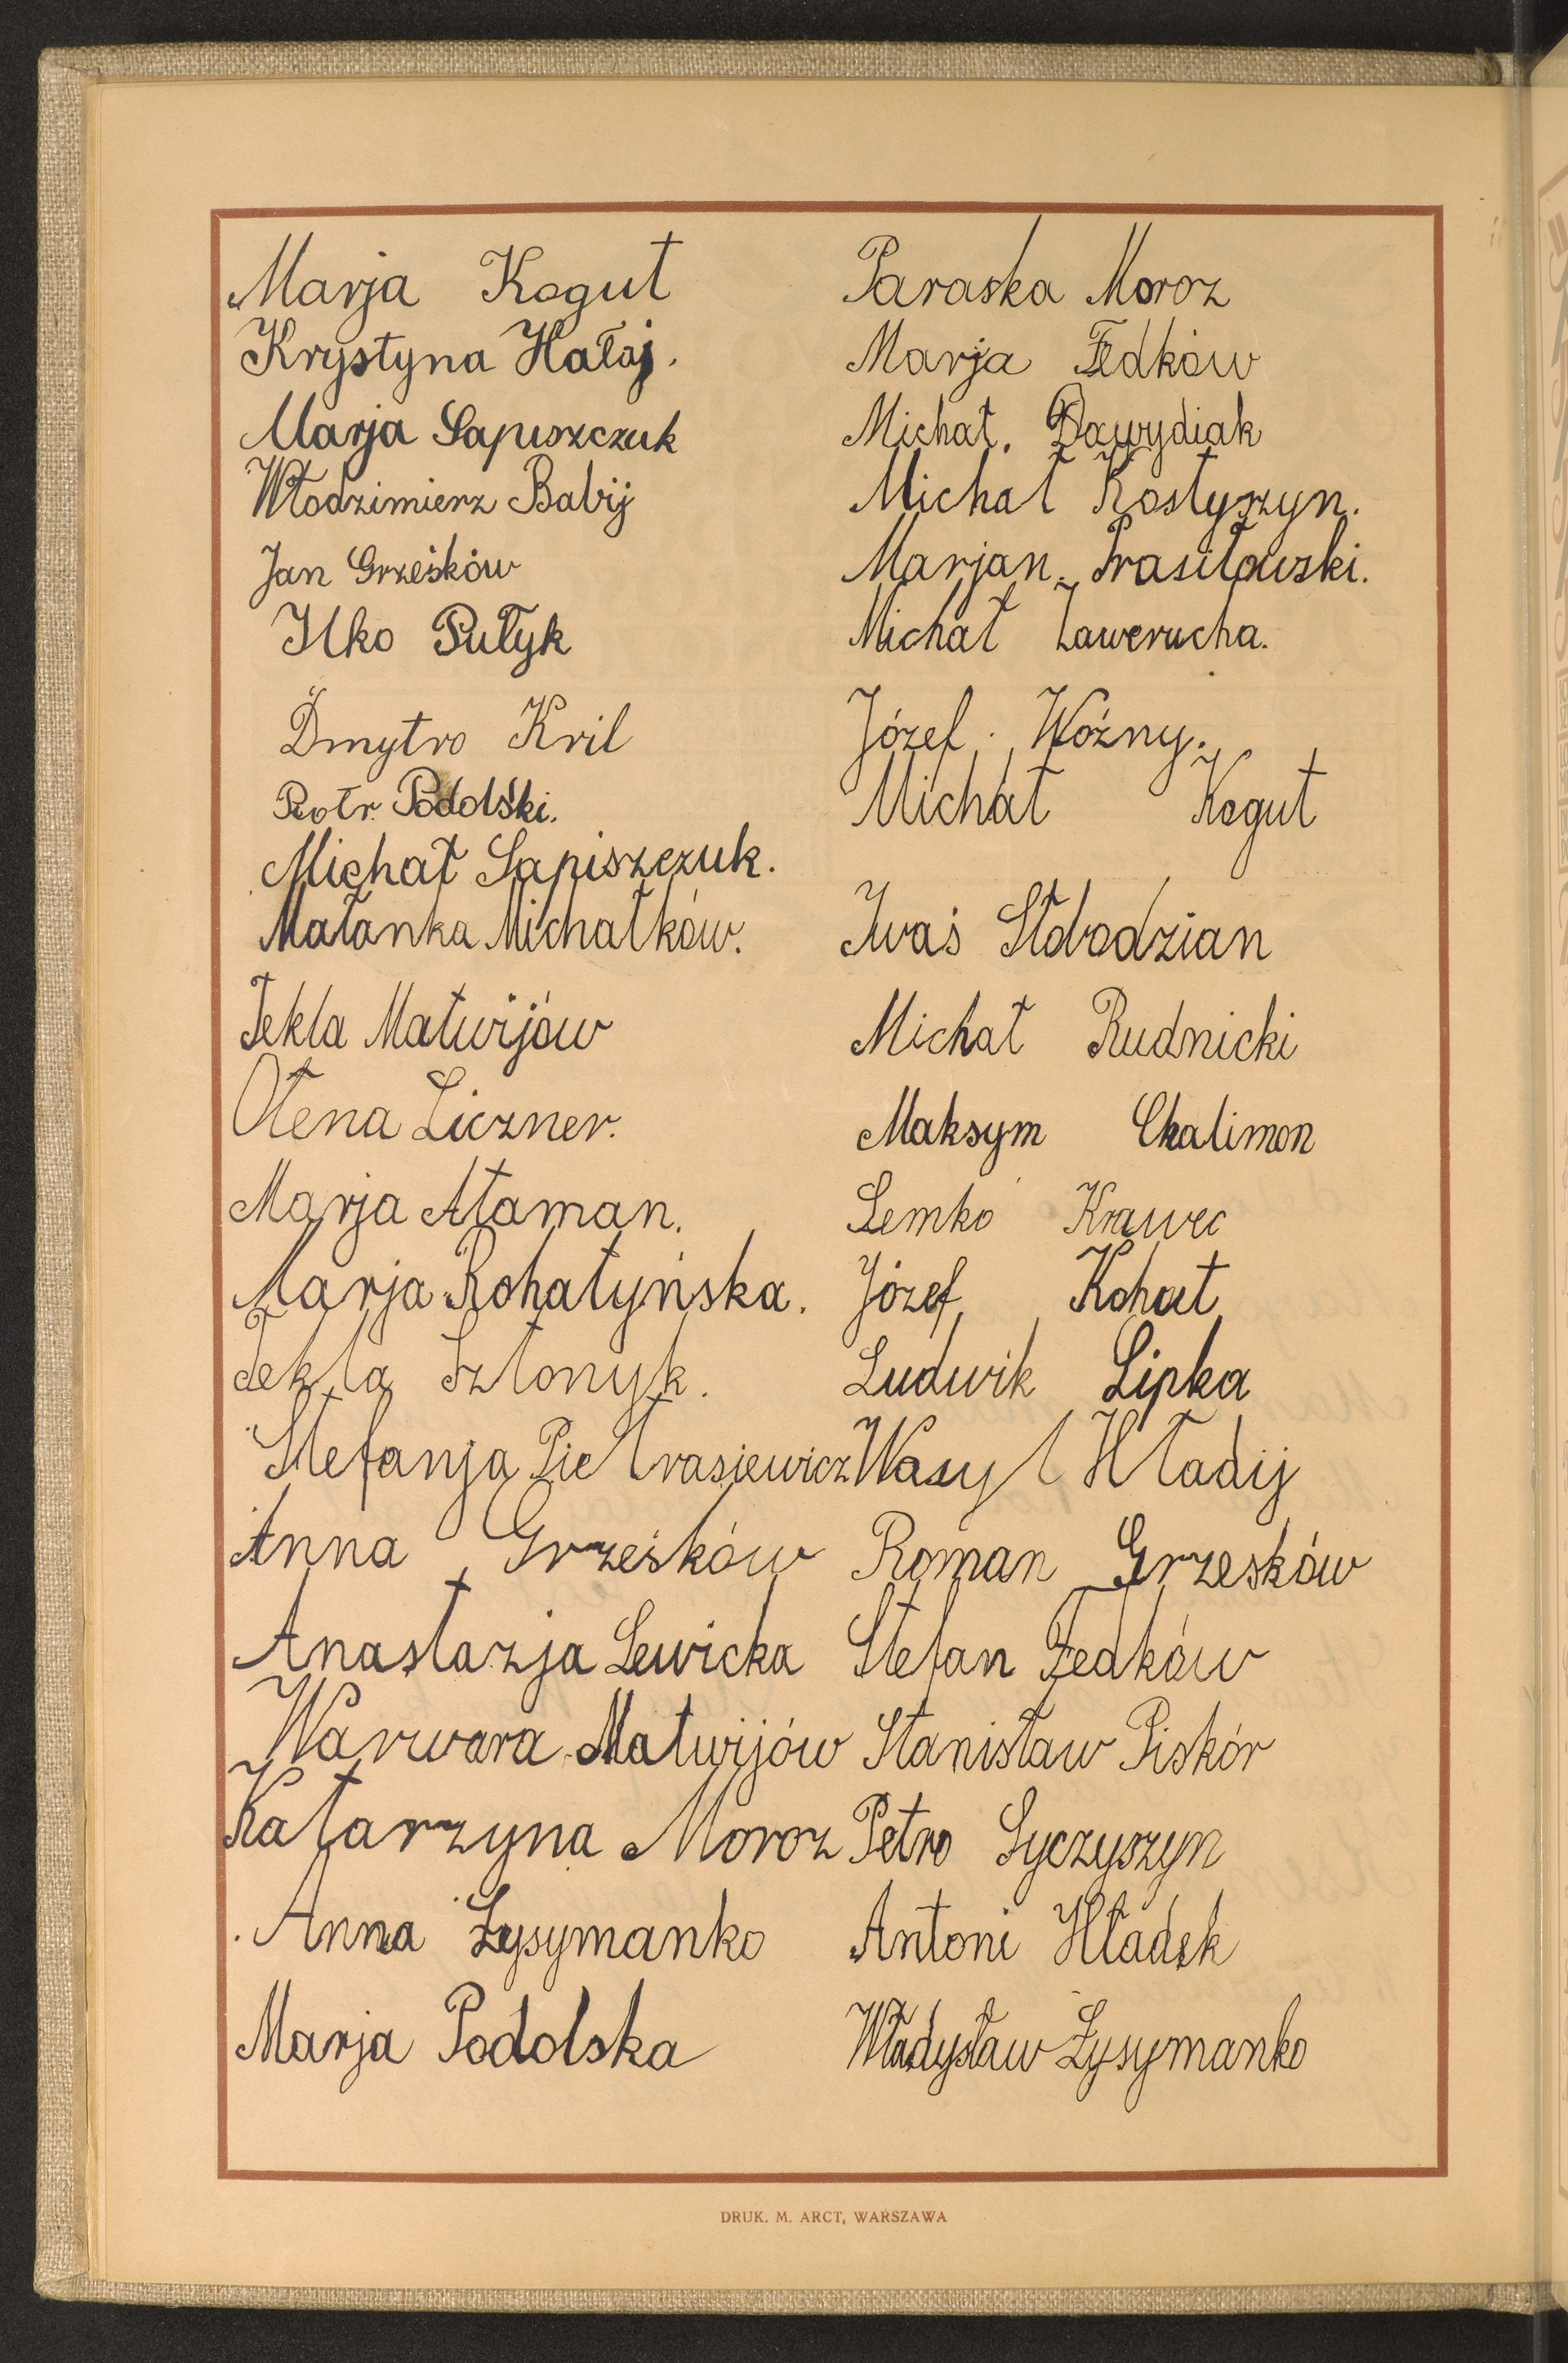 Marja Kogut
Krystyna Hałaj.
Marja Sapiszczuk
Włodzimierz Babij
Jan Grześków
Ilko Pułyk
Dmytro Kril
Piotr Podolski.
Michał Sapiszczuk.
Małanka Michałków.
Tekla Matwijów
Ołena Liczner.
Marja Ataman.
Marja Rohatyńska.
Tekla Szłonyk.
Stefanja Pietrasiewicz
Anna Grześków
Anastazja Lewicka
Warwara Matwijów
Katarzyna Moroz
Anna Łysymanko
Marja Podolska
Paraska Moroz
Marja Fedków
Michał. Dawydiak
Michał Kostyszyn.
Marjan Prasiłowski.
Michał Zawerucha.
Józef Woźny.
Michał Kogut
Iwaś Słobodzian
Michał Rudnicki
Maksym Chalimon
Semko Krawec
Józef Kohut
Ludwik Lipka
Wasyl Hładij
Roman Grzesków
Stefan Fedków
Stanisław Piskór
Petro Syczyszyn
Antoni Hładek
Władysław Łysymanko
DRUK. M. ARCT, WARSZAWA